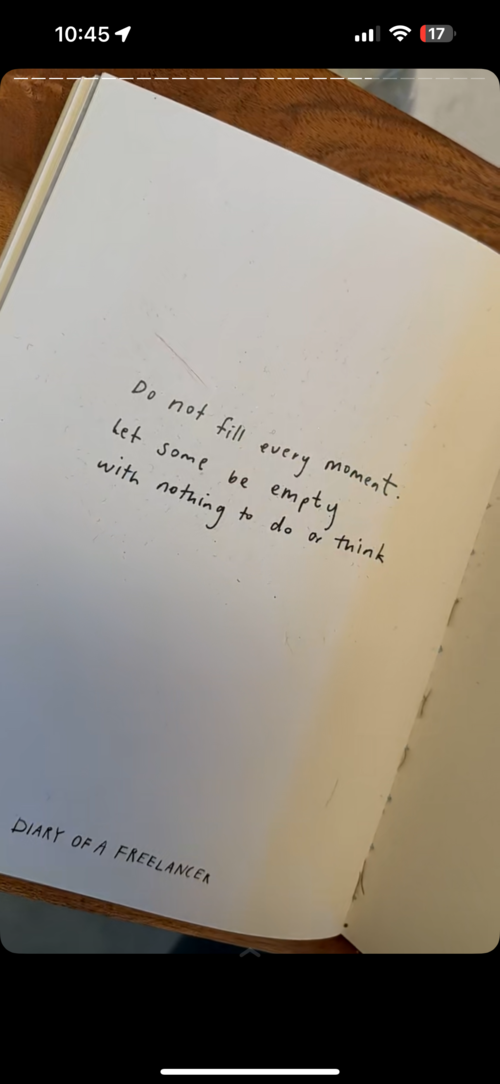 10:45
17
Do not fill every moment.
Let some be empty
with nothing to do or think
DIARY OF A FREELANCER